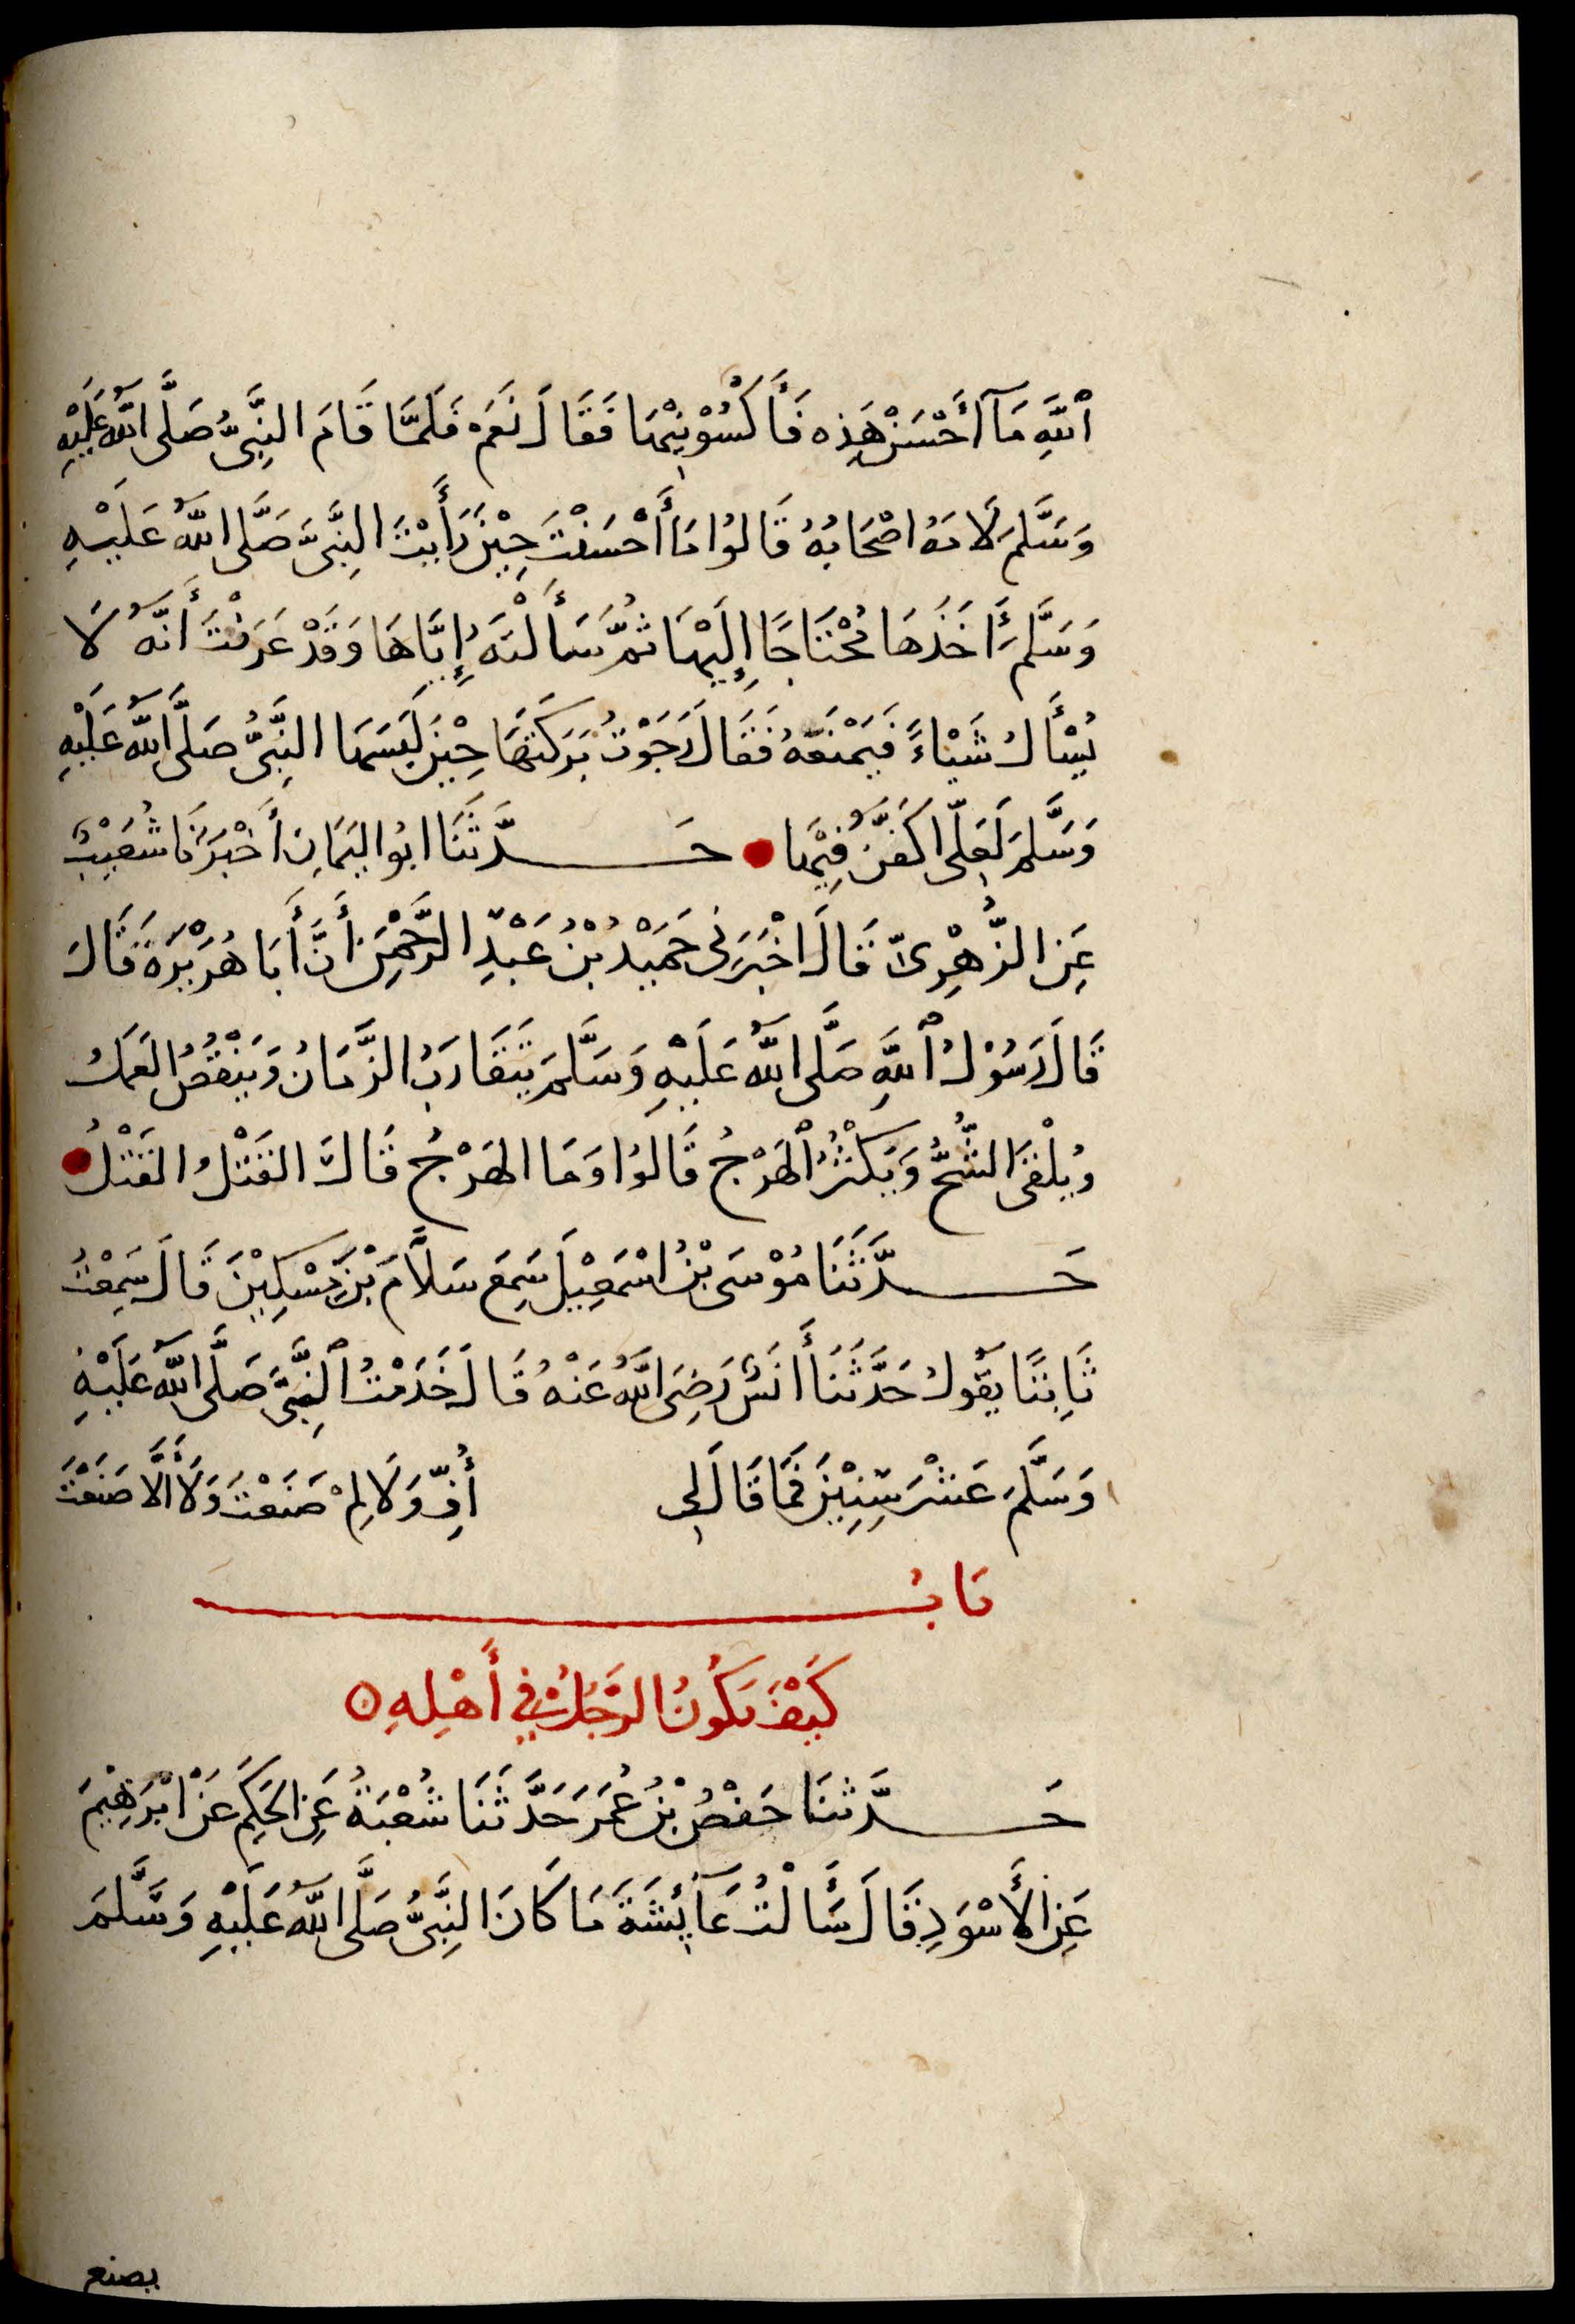 ٱللَّهِ مَآ أَحْسَنَ هَذِه فَأَكْسُوْنِيْهَا فَقَالَ نَعَمْ فَلَمَّا قَامَ النَّبِىُّ صَلَّى اللَّهُ عَلَيْهِ
وَسَلَّمَ لَامَهُ اصْحَابُهُ قَالُوا مَا أَحْسَنْتَ حِيْنَ رَأَيْتَ النَّبِىَّ صَلَّى اللَّهُ عَلَيْهِ
وَسَلَّمَ أَخَذَهَا مُحْتَاجًا إِلَيْهَا ثُمَّ سَأَلْتَهُ إِيَّاهَا وَقَدْ عَرَفْتَ أَنَّهُ لَا
يُسْأَلُ شَيْاءً فَيَمْنَعَهُ فَقَالَ رَجَوْتُ بَرَكَتَهَا حِيْنَ لَبِسَهَا النَّبِىُّ صَلَّى اللَّهُ عَلَيْهِ
وَسَلَّمَ لَعَلِّى اكَفَّنُ فِيْهَا حَدَّثَنَا ابُو اليَمَانِ أَخْبَرَنَا شُعَيْبٌ
عَنِ الزُّهْرِىِّ قَالَ اخْبَرَنِى حَمَيْدُ بْنُ عَبْدِ الرَّحْمٰنِ أَنَّ أَبَا هُرَيْرَةَ قَالَ
قَالَ رَسُوْلُ ٱللَّهِ صَلَّى اللَّهُ عَلَيْهِ وَسَلَّمَ يَتَقَارَبُ الزَّمَانُ وَيَنْقُصُ العَمَلُ
وَيُلْقَى الشُّحُّ وَيَكْثُرُ ٱلْهَرْجُ قَالُوا وَمَا الهَرْجُ قَالَ القَتْلُ القَتْلُ
حَدَّثَنَا مُوْسَى بْنُ اسْمَعِيْلَ سَمِعَ سَلاَّمَ بْنَ مِسْكِيْنَ قَالَ سَمِعْتُ
ثَابِتًا يَقُولُ حَدَّثَنَا أَنَسٌ رَضِىَ اللَّهُ عَنْهُ قَالَ خَدَمْتُ ٱلنَّبِىَّ صَلَّى اللَّهُ عَلَيْهِ
وَسَلَّمَ عَشْرَ سِنِيْنَ فَمَا قَالَ لِى أُفٍّ وَلَا لِمَ صَنَعْتَ وَلَا أَلَّا صَنَعْتَ
بَابُ
كَيْفَ يَكُونُ الرَّجُلُ فِي أَهْلِهِ
حَدَّثنَا حَفْصُ بْنُ عُمَرَ حَدَّثَنَا شُعْبَةُ عَنِ الحَكِمَ عَنْ ابْرَهِيْمَ
عَنِ الأَسْوَدِ قَالَ سَأَلْتُ عَآئِشَةَ مَا كَانَ النَّبِىُّ صَلَّى اللَّهُ عَلَيْهِ وَسَلَّمَ
يصنع